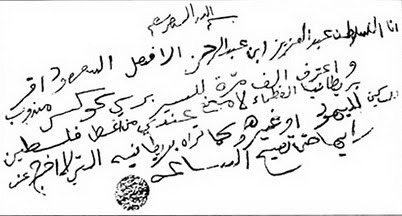 بسم الله الرحمن الرحيم
انا السلطان عبد العزيز ابن عبد الرحمن الافصل السعود اقر
و اعترف الف مرة للسير برسي كوكس مندوب
بريطانيا العظماء لا منع عندي من اعطا فلسطين
لليهود او غيرهم كما تراه بريطانيه التي لا اخرج عن
رايها حتى تصيح الساعه